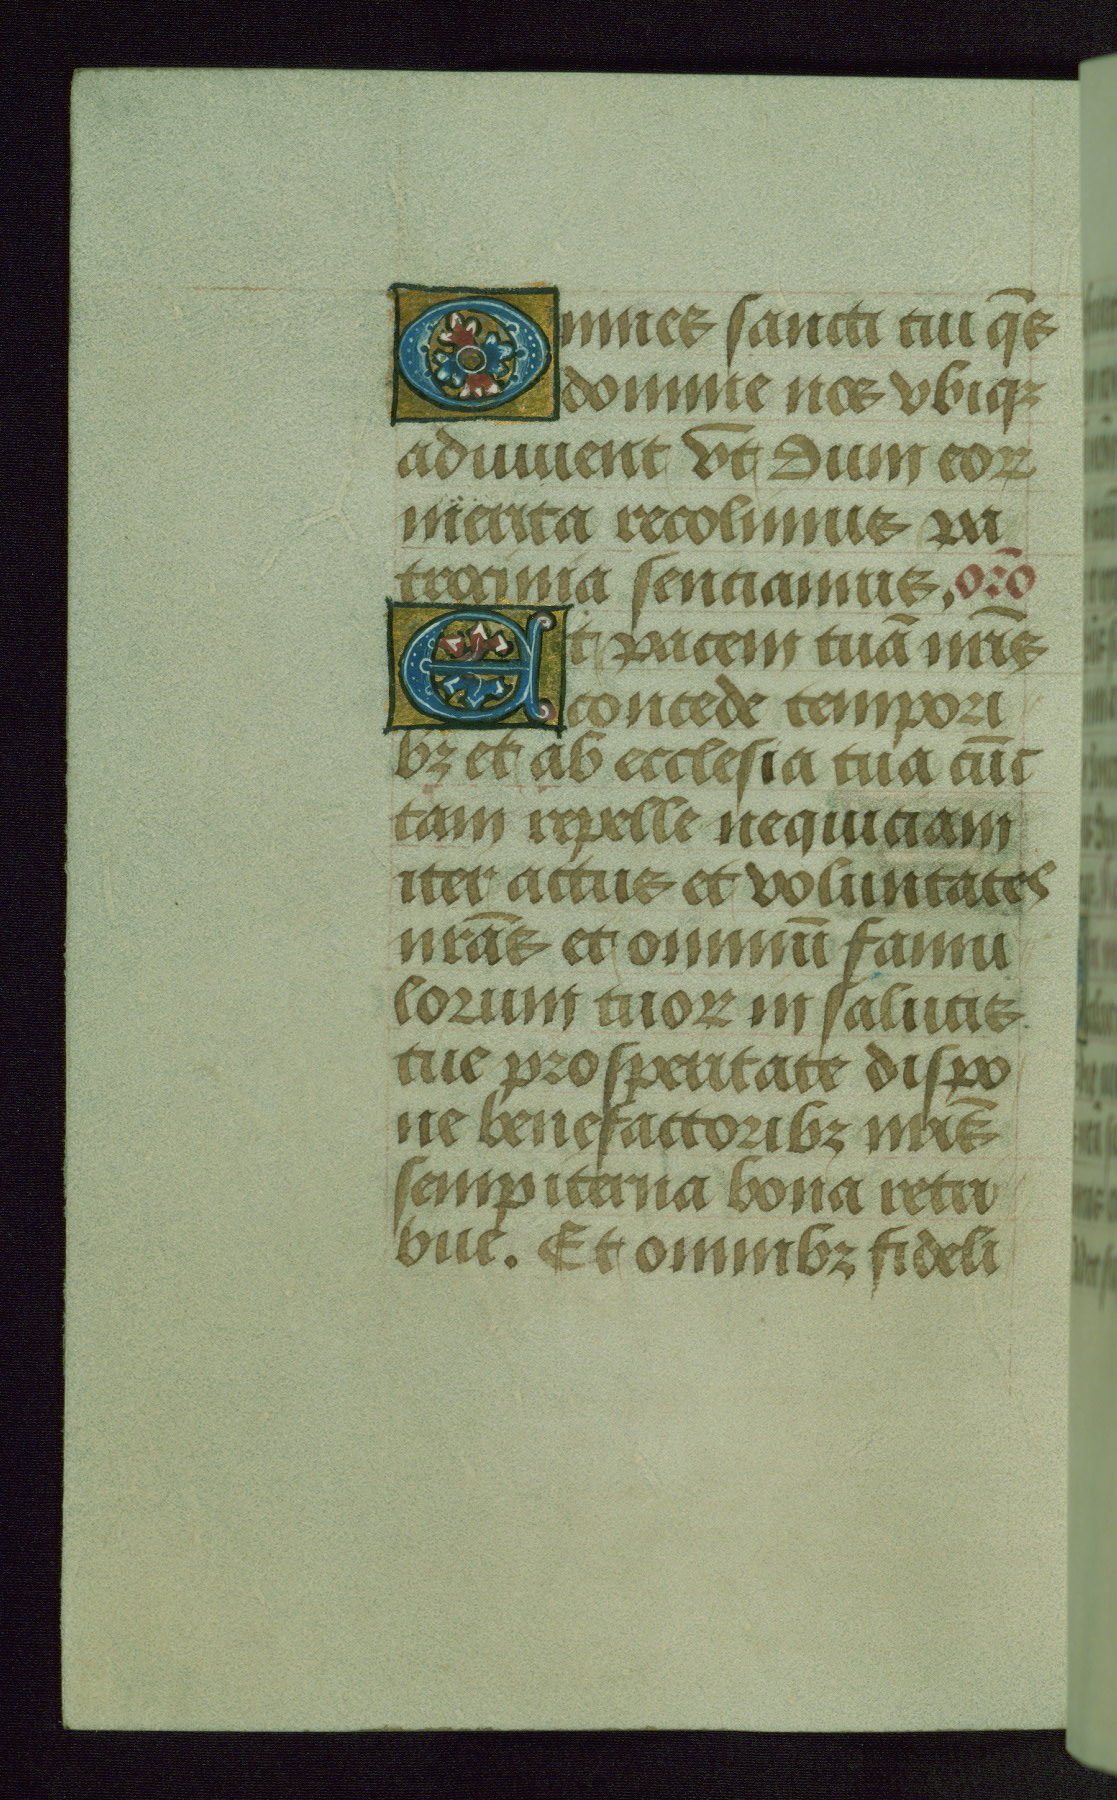 Omnes sancti tui q̄s
domine nos vbiqꝫ
adiuuent vt̄ Dum eoꝝ
merita recolimus pa
trocinia senciamus, or̄o
Et pacem tuā nr̄is
concede tempori
bꝫ et ab ecclesia tua cūc
tam repelle nequiciam
iter actus et voluntates
nrās et omniū famu
lorum tuoꝝ in salutis
tue prosperitate dispo
ne benefactoribꝫ nrīs
sempiterna bona retri
bue. Et omnibꝫ fideli